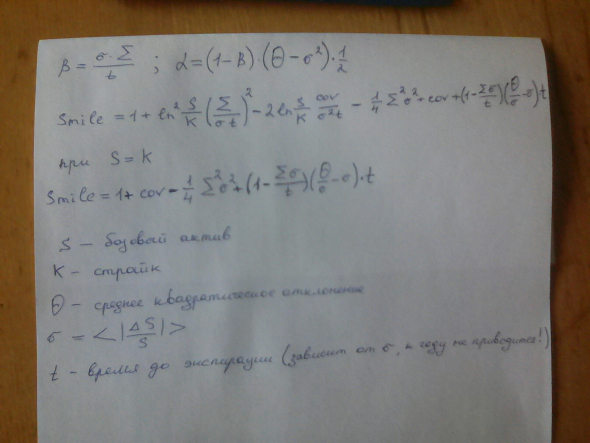 β = σ·Σ/t ; α = (1-β)·(Θ-σ²)·1/2
Smile = 1 + ln² S/K (Σ/σt)² - 2 ln S/K cov/σ²t - 1/4 Σ²σ² + cov + (1 - Σσ/t)(Θ/σ - σ)t
при S = K
Smile = 1 + cov - 1/4 Σ²σ² + (1 - Σσ/t)(Θ/σ - σ)·t
S - базовый актив
K - страйк
Θ - среднее квадратическое отклонение
σ = <|ΔS/S|>
t - время до экспирации (зависит от σ, к году не приводится!)